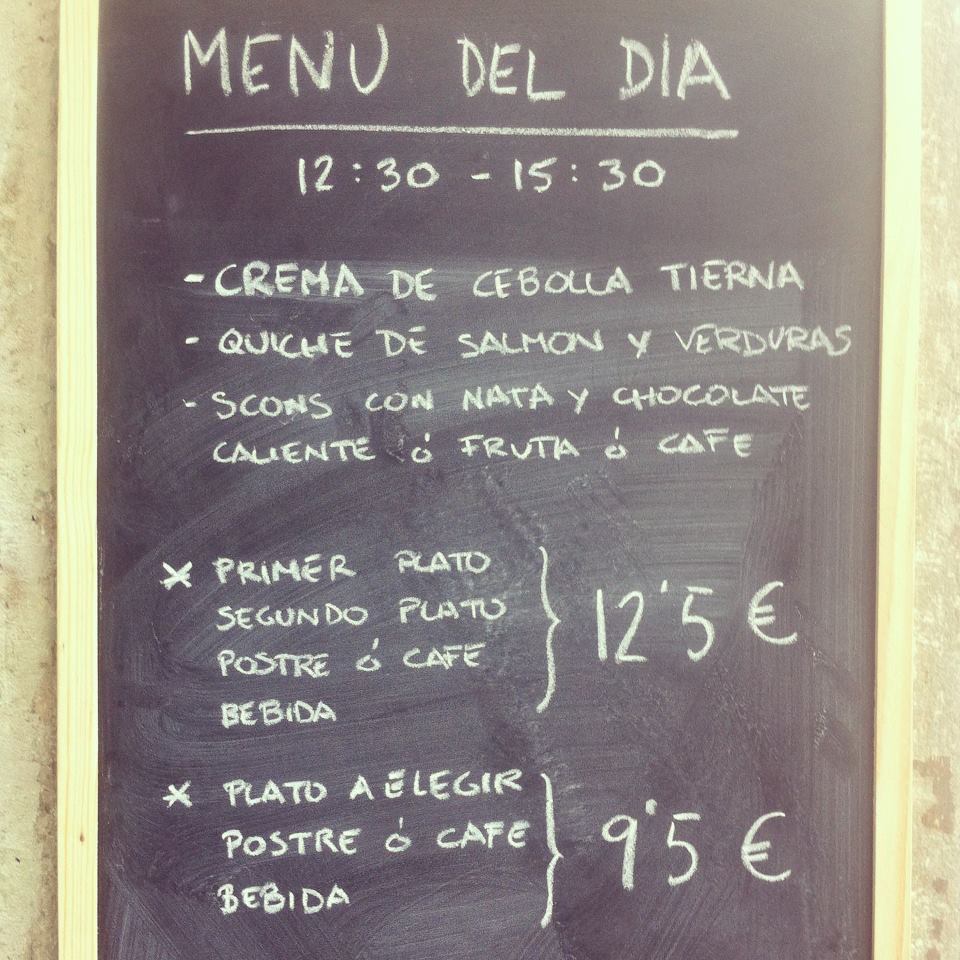 MENU DEL DIA
12:30 - 15:30
- CREMA DE CEBOLLA TIERNA
- QUICHE DE SALMON Y VERDURAS
- SCONS CON NATA Y CHOCOLATE
CALIENTE Ó FRUTA Ó CAFE
* PRIMER PLATO
SEGUNDO PLATO
POSTRE Ó CAFE
BEBIDA
12'5 €
* PLATO A ELEGIR
POSTRE Ó CAFE
BEBIDA
9'5 €